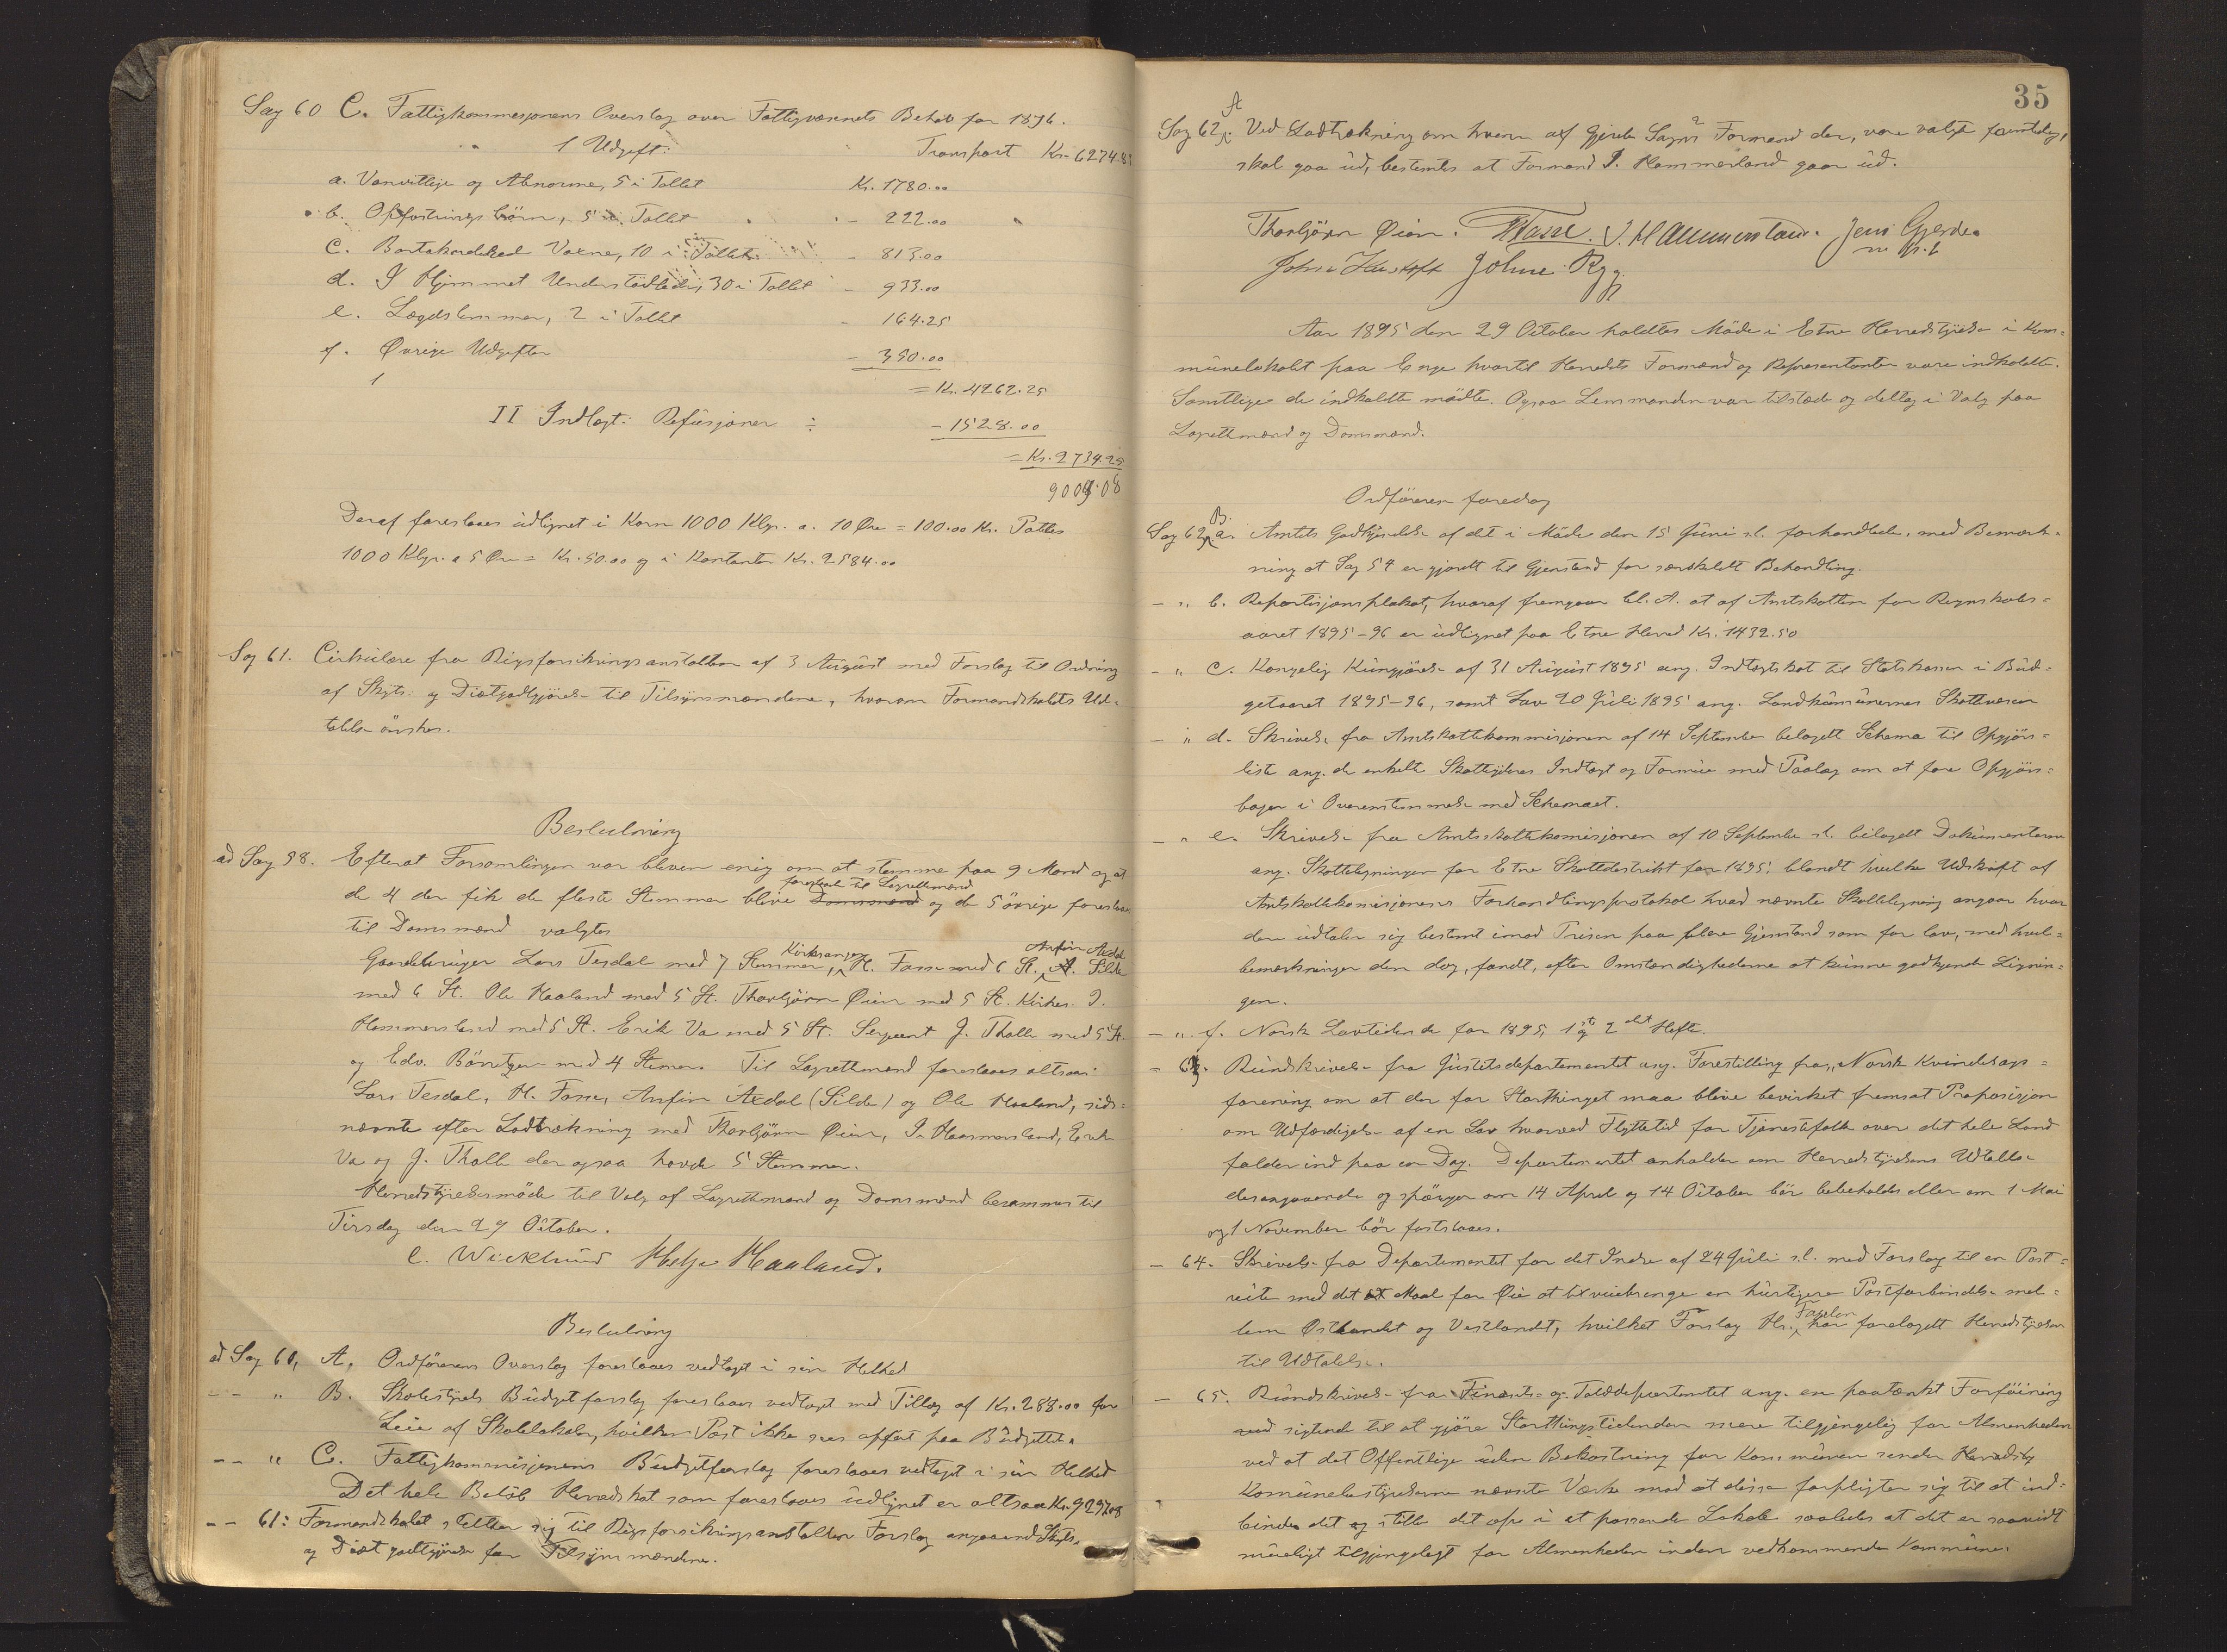 Sag 60 C. Fattigkommesjonens Overslag over Fattigvæsenets Behov for 1896.
1 Udgift: Transport Kr. 6274.83
a. Vanvittige og Abnorme, 5 i Tallet Kr. 1780.00
b. Opfostrings børn, 5 i Tallet - 222.00
c. Bortakorderede Voxne, 10 i Tallet - 813.00
d. I Hjemmet Understøttede, 30 i Tallet - 933.00
e. Lægdslemmer, 2 i Tallet - 164.25
f. Øvrige Udgifter - 350.00
= Kr. 4262.25
II Indtægt: Refusjoner ÷ - 1528.00
= Kr. 2734.25
9009.08
Deraf foreslaaes udlignet i Korn 1000 Klgr. a. 10 Øre = 100.00 Kr. Pottes
1000 Klgr. a 5 Øre = Kr. 50.00 og i Kontanter Kr. 2584.00
Sag 61. Cirkulære fra Rigsforsikringsanstalten af 3 August med Forslag til Ordning
af Skyts- og Diætgodtgjørelse til Tilsynsmændene, hvorom Formandskabets Ud-
talelse ønskes.
Beslutning
ad Sag 58. Efterat Forsamlingen var bleven enig om at stemme paa 9 Mand og at
de 4 der fik de fleste Stemmer blive Domsmænd foreslaaet til Lagrettemænd og de 5 øvrige foreslaaes
til Domsmænd valgtes
Gaardbruger Lars Tesdal med 7 Stemmer, Kirkesanger H. Fasse med 6 St. Anfin Axdal A. Silde
med 6 St. Ole Haaland med 5 St. Thorbjørn Øien med 5 St. Kirkes. I.
Hammersland med 5 St. Erik Va med 5 St. Serjeant J. Tholle med 5 St.
og Edv. Børretzen med 4 Stemer. Til Lagrettemænd foreslaaes altsaa:
Lars Tesdal, H. Fasse, Anfin Axdal (Silde) og Ole Haaland, sids-
nævnte efter Lodtrækning med Thorbjørn Øien, I. Haammersland, Erik
Va og J. Tholle der ogsaa havde 5 Stemmer.
Herredstyrelsesmøde til Valg af Lagrettemænd og Domsmænd berammes til
Tirsdag den 29 October.
C. Wicklund Helje Haaland.
Beslutning
ad Sag 60, A. Ordførerens Overslag foreslaaes vedtaget i sin Helhed
- - " B. Skolestyrets Budgetforslag foreslaaes vedtaget med Tillæg af Kr. 288.00 for
Leie af Skolelokaler, hvilken Post ikke sees opført paa Budgettet.
- - " C. Fattigkommisjonens Budgetforslag foreslaaes vedtaget i sin Helhed
Det hele Beløb Herredskat som foreslaaes udlignet er altsaa Kr. 9297.08
- - 61: Formandskabet slutter sig til Rigsforsikringsanstalten Forslag angaaende Skyts-
og Diæt godtgjørelse for Tilsynsmændene.
35
Sag 62 A. Ved Lodtrækning om hvem af Gjerde Sogns 2 Formænd der, vare valgte samtidig,
skal gaa ud, bestemtes at Formand I. Hammersland gaar ud.
Thorbjørn Øien. HFasse. I. Hammersland. Jens Gjerde
m. p. P.
Johne Rygg
Aar 1895 den 29 October holdtes Møde i Etne Herredstyrelse i Kom-
munelokalet paa Enge hvortil Herredets Formænd og Repræsentanter vare indkaldte.
Samtlige de indkaldte mødte. Ogsaa Lensmanden var tilstede og deltog i Valg paa
Lagrettmænd og Domsmænd.
Ordføreren foredrog
Sag 62 B. a. Amtets Godkjendelse af det i Møde den 15 Juni d.A. forhandlede, med Bemærk-
ning at Sag 54 er gjordt til Gjenstand for særskildt Behandling.
- " b. Repartisjonsplakat, hvoraf fremgaar bl. A. at af Amtskatten for Regnskabs-
aaret 1895-96 er udlignet paa Etne Herred Kr. 1432.50
- " c. Kongelig Kungjørelse af 31 August 1895 ang. Indtægtskat til Statskassen i Bud-
getaaret 1895-96, samt Lov 20 Juli 1895 ang. Landkomunernes Skattvæsen
- " d. Skrivelse fra Amtskattekommisjonen af 14 September belagett Schema til Opgjørs-
liste ang. de enkelte Skattyderes Indtægt og Formue med Paalæg om at føre Opgjørs-
bogen i Overenstemmelse med Schemaet.
- " e. Skrivelse fra Amtsskattekomisjonen af 10 September d.A. bilagett Dokumenterne
ang. Skatteligningen for Etne Skattedistrikt for 1895, blandt hvilke Udskrift af
Amtskattekomisjonens Forhandlingsprotokol hvad nævnte Skatteligning angaar hvor
den udtaler sig bestemt imod Prisen paa flere Gjenstand som for lav, med hvil-
bemærkninger den dog, fandt, efter Omstændighederne at kunne godkjende Lignin-
gen.
- " f. Norsk Lovtidende for 1895, 1st og 2det Hefte.
- 63. Rundskrivelse fra Justitsdepartementet ang. Forestilling fra "Norsk Kvindesags-
forening om at der for Storthinget maa blive bevirket fremsat Proposisjon
om Udfærdigelse af en Lov hvorved Flyttetid for Tjenestefolk over det hele Land
falder ind paa en Dag. Departementet anholder om Herredstyrelsens Udtalelse
desangaaende og spørger om 14 April og 14 October bør bibeholdes eller om 1 Mai
og 1 November bør fastslaaes.
- 64. Skrivelse fra Departementet for det Indre af 24 Juli d.A. med Forslag til en Post-
rute med det Maal for Øie at tilveiebringe en hurtigere Postforbindelse mel-
lem Østlandet og Vestlandet, hvilket Forslag Hr. har forelagett Herredstyrelsen
til Udtalelse.
- 65. Rundskrivelse fra Finants- og Tolddepartemtet ang. en paatænkt Forføining
med sigtende til at gjøre Storthingstidenden mere tilgjengelig for Almenheden
ved at det Offentlige uden Bekostning for Kommunen sender Herreds og
Komunebestyrelserne nævnte Værk mod at disse forpligter sig til at ind-
binde det og stille det op i et passende Lokale saaledes at det er saavidt
muligt tilgjengeligt for Almenheden inden vedkommende Kommune.